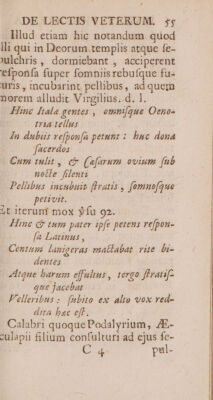 DE LECTIS VETERUM. 55
Illud etiam hic notandum quod
illi qui in Deorum templis atque se-
pulchris, dormiebant, acciperent
responsa super somniis rebusque fu-
turis, incubarint pellibus, ad quem
morem alludit Virgilius. d. l.
Hinc Itala gentes, omnisque Oeno-
tria tellus
In dubiis responsa petunt: huc dona
sacerdos
Cum tulit, & Cæsarum ovium sub
nocte silenti
Pellibus incubuit stratis, somnosque
petivit.
Et iterum mox ỳsu 92.
Hinc & tum pater ipse petens respon-
sa Latinus,
Centum lanigeras mactabat rite bi-
dentes
Atque harum effultus, tergo stratis-
que jacebat
Velleribus: subito ex alto vox red-
dita hac est.
Calabri quoque Podalyrium, Æ-
sculapii filium consulturi ad ejus se-
C 4 pul-